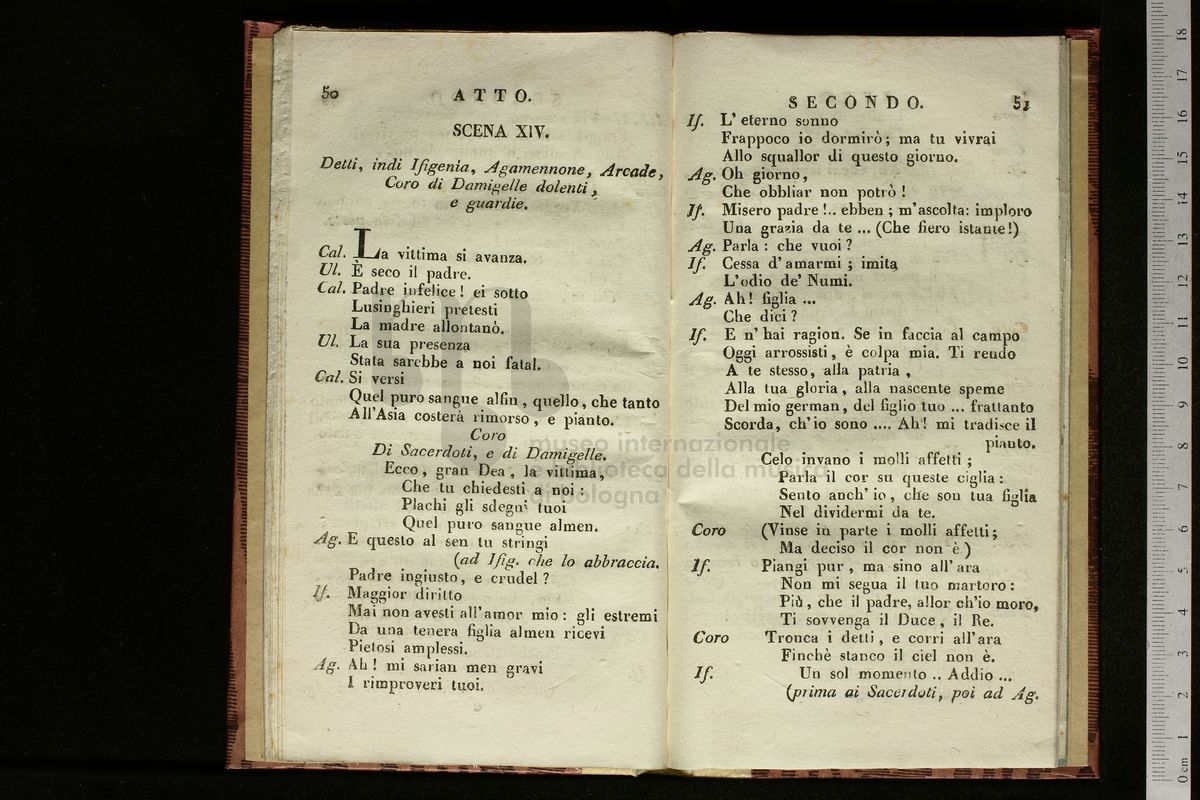 50
ATTO.
SCENA XIV.
Detti, indi Ifigenia, Agamennone, Arcade,
Coro di Damigelle dolenti,
e guardie.
Cal. La vittima si avanza.
Ul. È seco il padre.
Cal. Padre infelice! ei sotto
Lusinghieri pretesti
La madre allontanò.
Ul. La sua presenza
Stata sarebbe a noi fatal.
Cal. Si versi
Quel puro sangue alfin, quello, che tanto
All'Asia costerà rimorso, e pianto.
Coro
Di Sacerdoti, e di Damigelle.
Ecco, gran Dea, la vittima,
Che tu chiedesti a noi:
Plachi gli sdegni tuoi
Quel puro sangue almen.
Ag. E questo al sen tu stringi
(ad Ifig. che lo abbraccia.
Padre ingiusto, e crudel?
If. Maggior diritto
Mai non avesti all'amor mio: gli estremi
Da una tenera figlia almen ricevi
Pietosi amplessi.
Ag. Ah! mi sarian men gravi
I rimproveri tuoi.
SECONDO.
51
If. L'eterno sonno
Frappoco io dormirò; ma tu vivrai
Allo squallor di questo giorno.
Ag. Oh giorno,
Che obbliar non potrò!
If. Misero padre!.. ebben; m'ascolta: imploro
Una grazia da te ... (Che fiero istante!)
Ag. Parla: che vuoi?
If. Cessa d'amarmi; imita
L'odio de' Numi.
Ag. Ah! figlia ...
Che dici?
If. E n'hai ragion. Se in faccia al campo
Oggi arrossisti, è colpa mia. Ti rendo
A te stesso, alla patria,
Alla tua gloria, alla nascente speme
Del mio german, del figlio tuo ... frattanto
Scorda, ch'io sono .... Ah! mi tradisce il
pianto.
Celo invano i molli affetti;
Parla il cor su queste ciglia:
Sento anch'io, che son tua figlia
Nel dividermi da te.
Coro (Vinse in parte i molli affetti;
Ma deciso il cor non è)
If. Piangi pur, ma sino all'ara
Non mi segua il tuo martoro:
Più, che il padre, allor ch'io moro,
Ti sovvenga il Duce, il Re.
Coro Tronca i detti, e corri all'ara
Finchè stanco il ciel non è.
If. Un sol momento .. Addio ...
(prima ai Sacerdoti, poi ad Ag.
museo internazionale
e biblioteca della musica
di bologna
0 cm 1 2 3 4 5 6 7 8 9 10 11 12 13 14 15 16 17 18